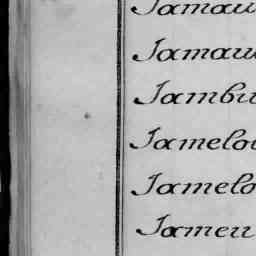 Jamau
Jamau
Jambu
Jamelou
Jamelo
Jameu